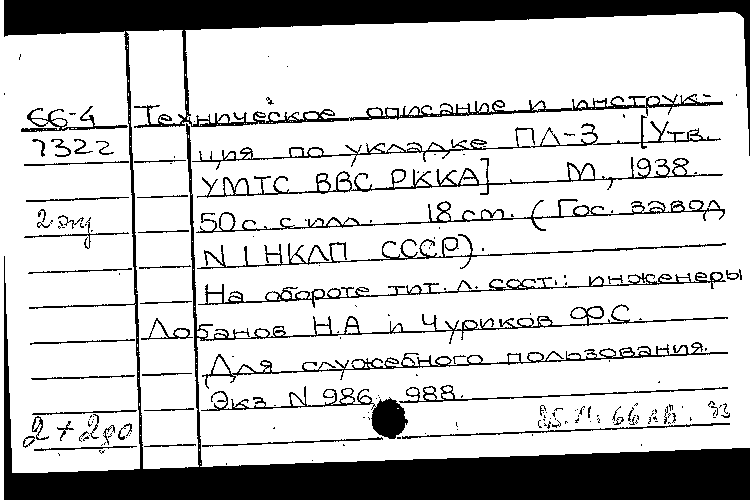 66-4 Техническое описание и инструк-
7322 ция по укладке ПЛ-3. [Утв.
УМТС ВВС РККА]. М., 1938.
2 экз 50 с. с илл. 18 см. (Гос. завод
N 1 НКЛП СССР).
На обороте тит. л. сост.: инженеры
Лобанов Н.А и Чуриков Ф.С.
Для служебного пользования.
Экз. N 986, 988.
2 + 2до 66 33